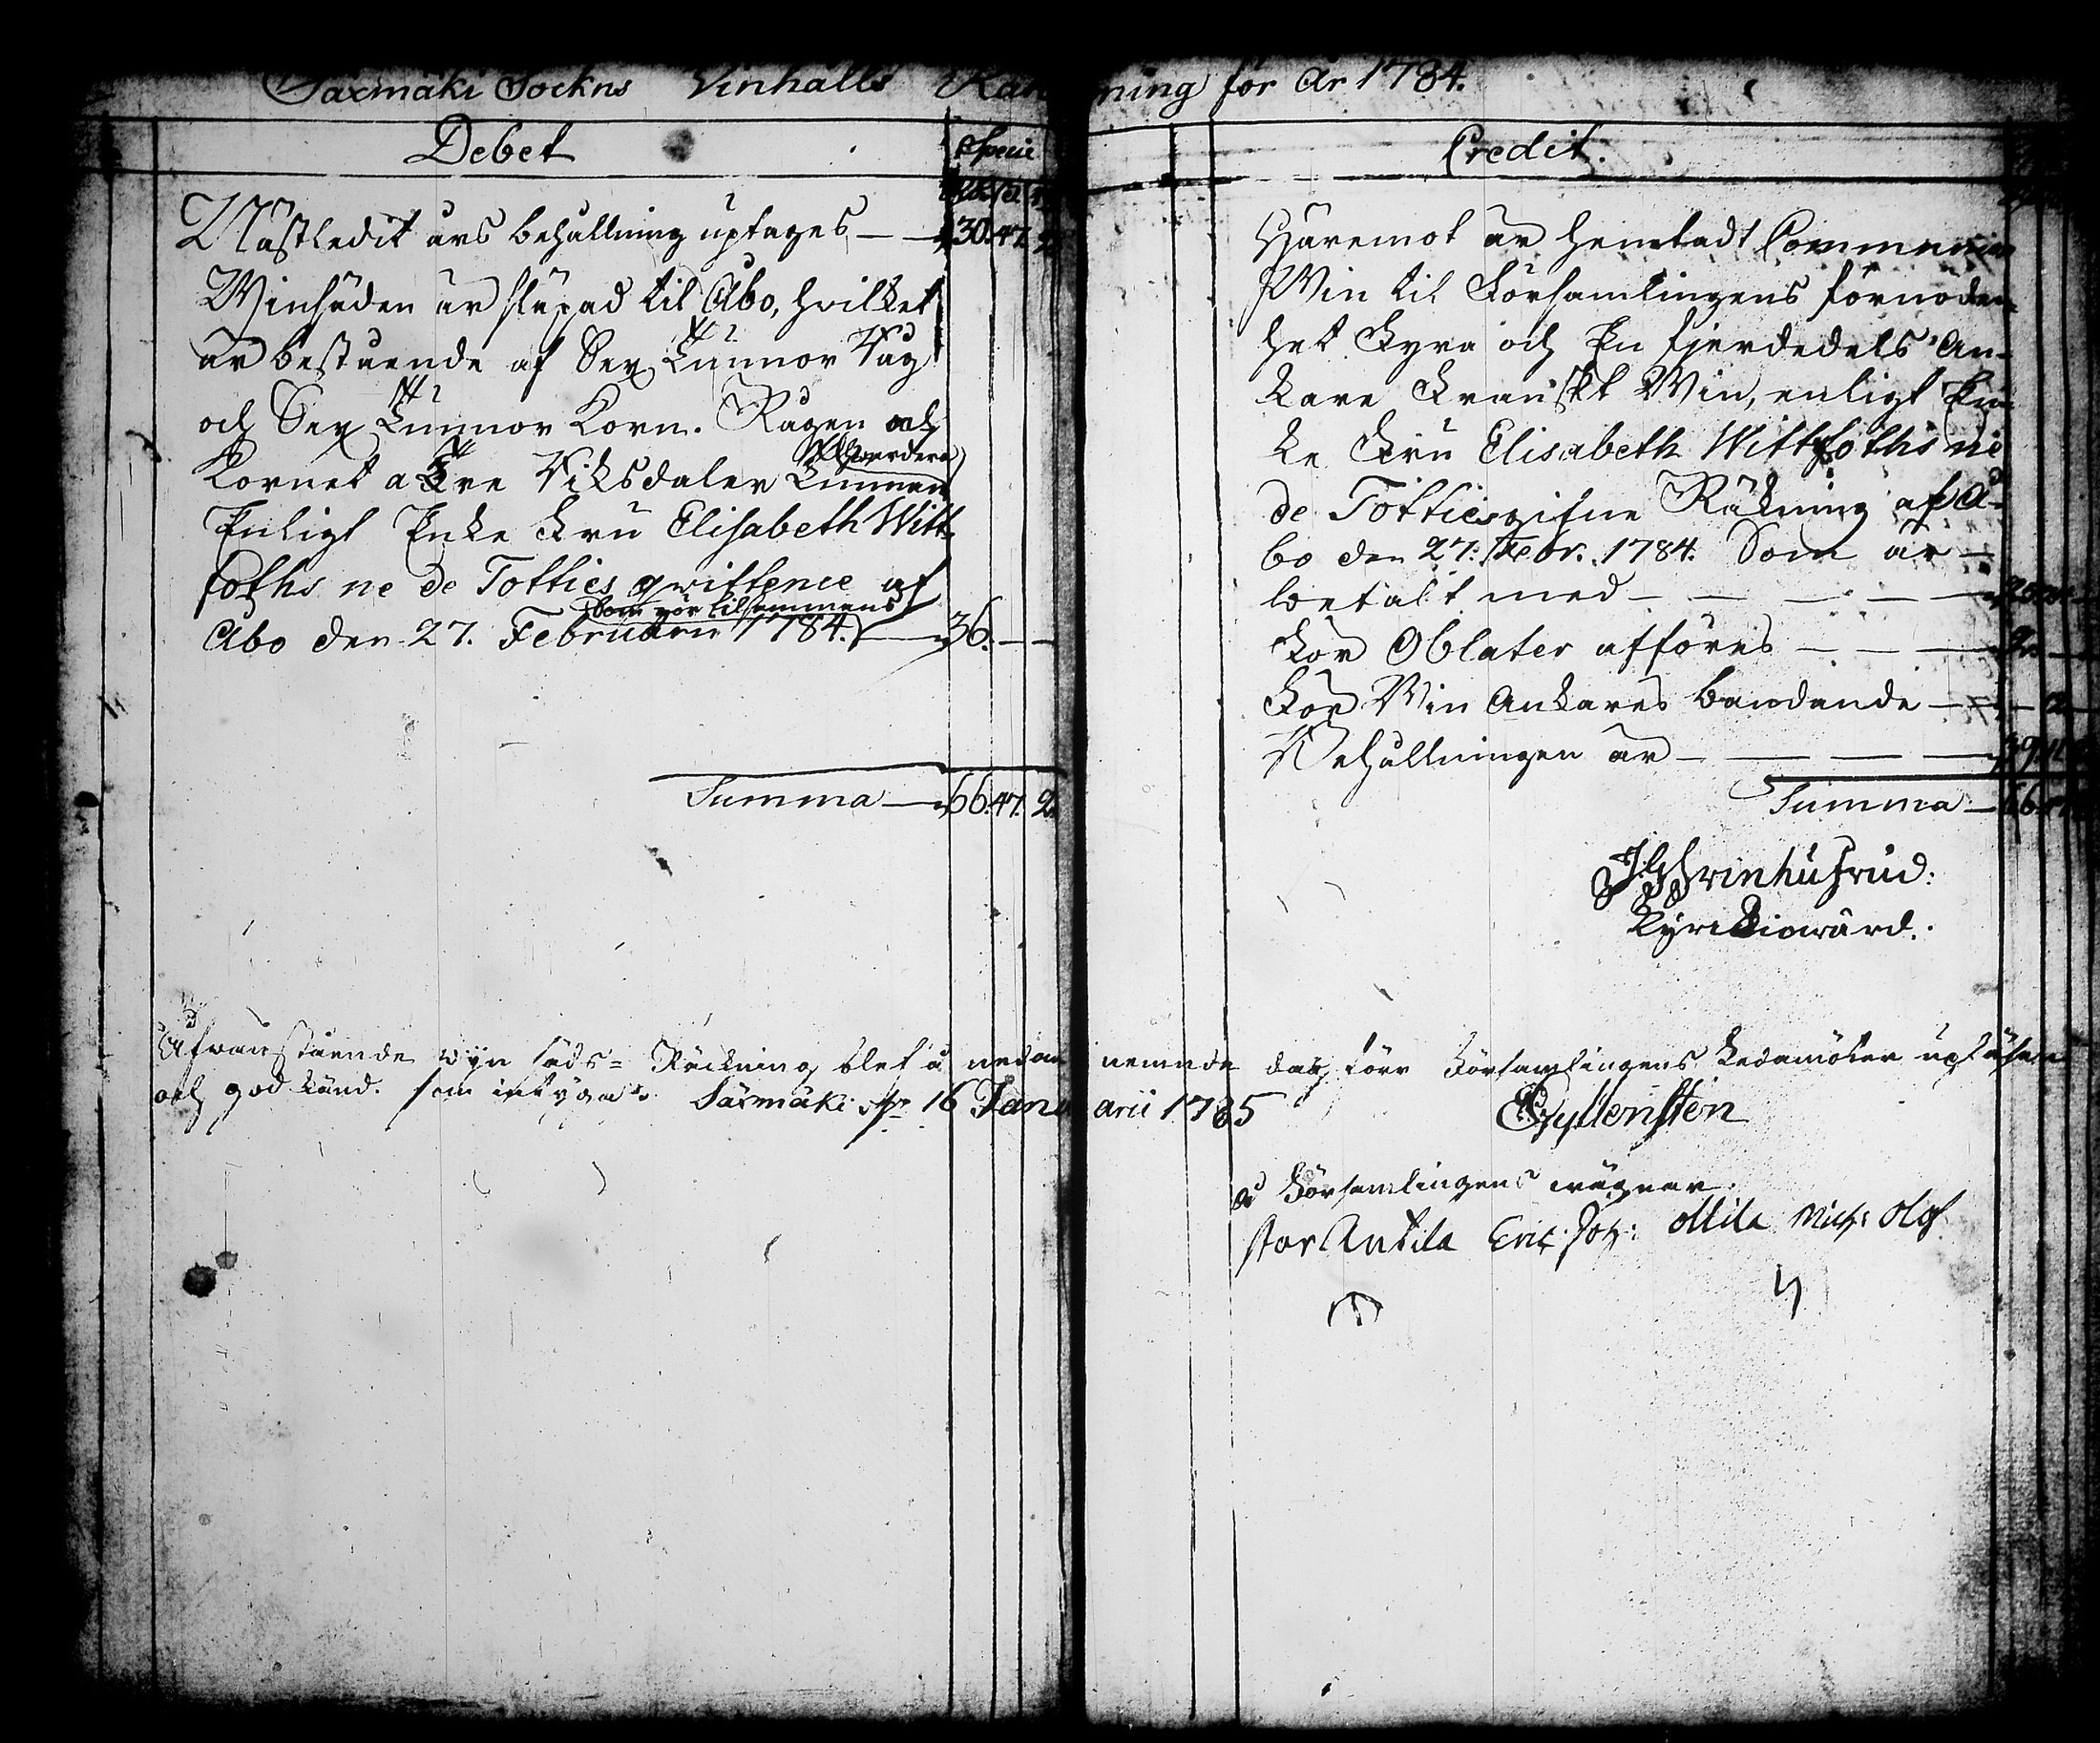 Säxmäki Sockns Vinhålls Räkning för år 1784.
Debet
Specie
Nästledit års behållning uptages — 30. 47. 2.
Winsäden är släpad til Åbo, hvilket
är bestående af Sex Tunnor Råg
och Sex Tunnor Korn. Rågen och
Kornet a Tre Riksdaler Tunnan
Enligt Enke Fru Elisabeth Witt-
foths ne de Totties qvittence af
som gör tilsammans
Åbo den 27. Februarii 1784. — 36. — —
Summa — 66. 47. 2.
Credit.
Häremot är hemtadt Communion
Win til Församlingens förnöden-
het Fyra och En fjerdedels An-
kare Franskt Win, enligt En-
ke Fru Elisabeth Wittfoths ne
de Totties gifne Räkning af Å-
bo den 27: Febr. 1784. Som är
betalt med —
För Oblater afföres — 2.
För Win Ankares bandande —
Behållningen är —
Summa — 66.
Kyrckiowärd.
Ofvanstående wyn säds-Räckning blef å nedan nemnde dag förr Församlingens Ledamöter upläsen
och godkänd. som intygas Säxmäki 16 Januarii 1785
Gyllenstén
å Församlingens wägnar
Antila Eric Joh: Mich: Olof